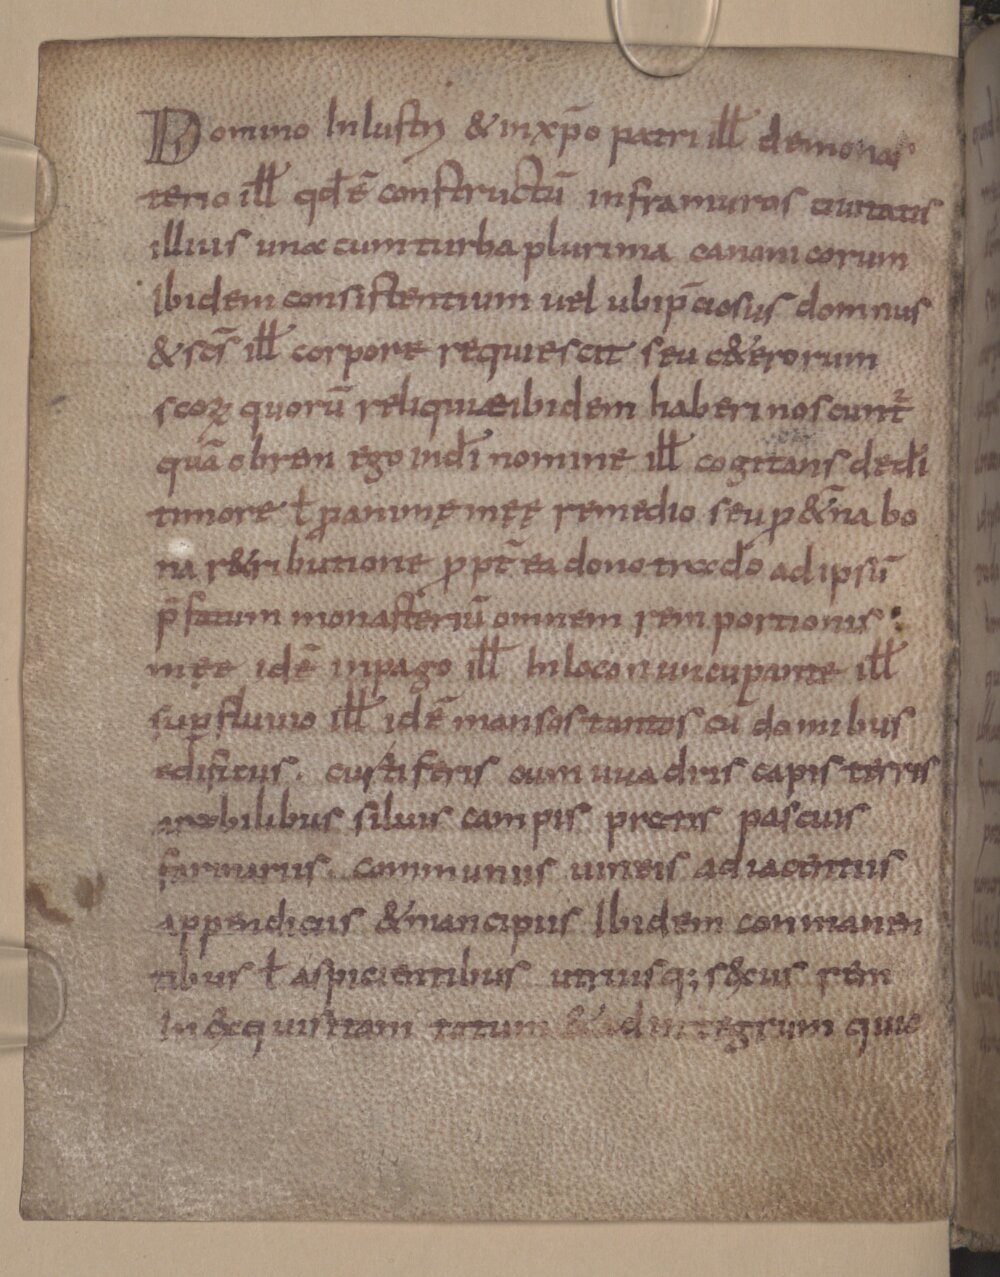 Domino Inlustri & inxp̄o patri ill̄ demonas
terio ill̄ qd̄ ē constructū inframuros ciuitatis
illius una cumturba plurima canonicorum
Ibidem consistentium uel ubip̄ciosus domnus
& scs̄ ill̄ corpore requiescit seu c&erorum
scoꝝ quorū reliquiæ ibidem haberi noscunt̄
quā obrem ego indi̅ nomine ill̄ cogitans de di̅
timore ł ꝓanimę męę remedio seu ꝓ &̄na bo
na r&ributione ꝓpt̄ ea dono trado ad ipsū
p̄fatum monasteriū omnem rem portionis
męe idē inpago ill̄ Inloconuncupante ill̄
sup̱ fluuio ill̄ idē mansos tantos cū domibus
edificiis. custiferis cum uuadris capis terris
arabilibus siluis campis pratis pascuis
farinariis. communiis uineis adiacentiis
appendiciis & mancipiis Ibidem conmanen
tibus ł aspicientibus utriusq; s&cus rem
In &xquisitam totum & ad integrum quic